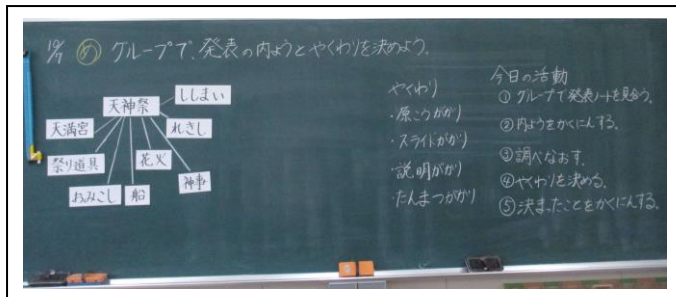 10/7 め グループで、発表の内ようとやくわりを決めよう。
天神祭
ししまい
れきし
神事
花火
船
おみこし
祭り道具
天満宮
やくわり
・原こうがかり
・スライドがかり
・説明がかり
・たんまつがかり
今日の活動
①グループで発表ノートを見合う。
②内ようをかくにんする。
③調べなおす。
④やくわりを決める。
⑤決まったことをかくにんする。